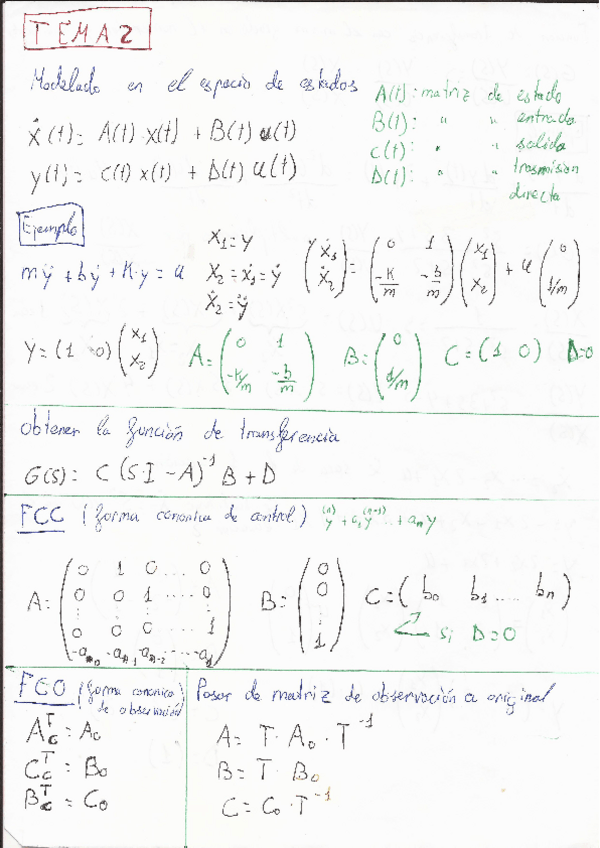 TEMA 2
Modelado en el espacio de estados
ẋ(t) = A(t)·x(t) + B(t) u(t)
y(t) = C(t) x(t) + D(t) u(t)
A(t): matriz de estado
B(t): " " entrada
C(t): " " salida
D(t): " " trasmision
directa
Ejemplo
mÿ + bẏ + K·y = u
x₁ = y
ẋ₂ = ẋ₁ = ẏ
ẋ₂ = ÿ
(ẋ₁ ; ẋ₂) = (0 1 ; -K/m -b/m) (x₁ ; x₂) + u (0 ; 1/m)
y = (1 0) (x₁ ; x₂)
A = (0 1 ; -K/m -b/m) B = (0 ; 1/m) C = (1 0) D=0
Obtener la función de transferencia
G(s) = C (S·I - A)⁻¹ B + D
FCC (forma canonica de control) y⁽ⁿ⁾ + a₁y⁽ⁿ⁻¹⁾ ... + aₙy
A = (0 1 0 .... 0 ; 0 0 1 .... 0 ; 0 0 0 .... 1 ; -aₙ -aₙ₋₁ -aₙ₋₂ .... -a₁) B = (0 ; 0 ; ⋮ ; 1) C = (b₀ b₁ .... bₙ)
si D=0
FCO (forma canonica
de observación)
A_c^T = A₀
C_c^T = B₀
B_c^T = C₀
Pasar de matriz de observación a original
A = T · A₀ · T⁻¹
B = T · B₀
C = C₀ · T⁻¹